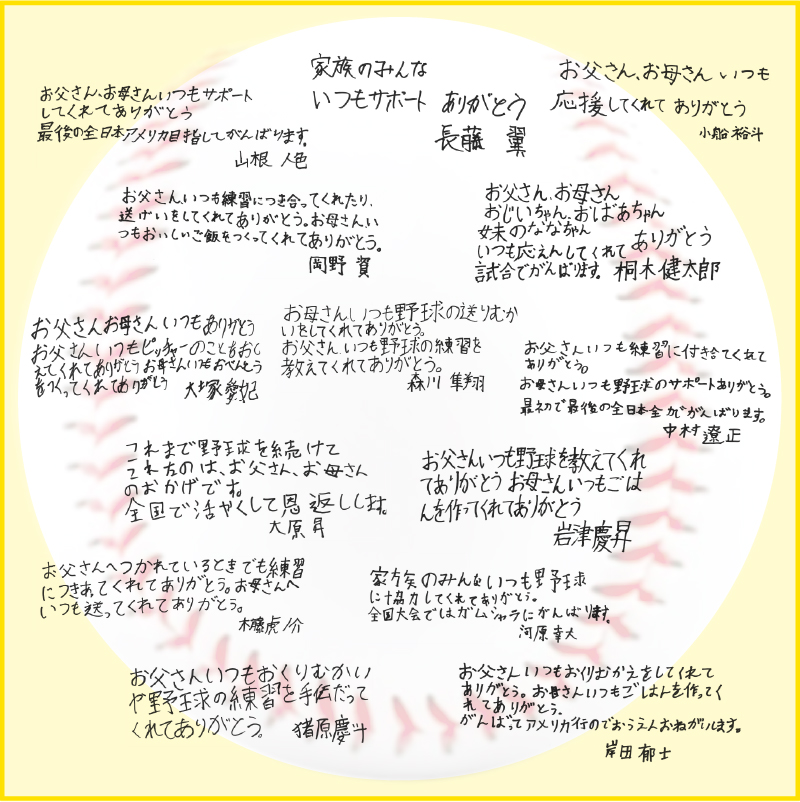 お父さん、お母さんいつもサポート
してくれてありがとう
最後の全日本アメリカ目指してがんばります。
山根 人色
家族のみんな
いつもサポート ありがとう
長藤 翼
お父さん、お母さん いつも
応援してくれて ありがとう
小船 裕斗
お父さんいつも練習につき合ってくれたり、
送げいをしてくれてありがとう。お母さんい
つもおいしいご飯をつくってくれてありがとう。
岡野 資
お父さん、お母さん
おじいちゃん、おばあちゃん
妹のななちゃん
いつも応えんしてくれて ありがとう
試合でがんばります。 桐木健太郎
お父さんお母さんいつもありがとう
お父さんいつもピッチャーのことをおし
えてくれてありがとうお母さんいつもおべんとう
をつくってくれてありがとう 大塚愛妃
お母さんいつも野球の送りむか
いをしてくれてありがとう。
お父さんいつも野球の練習を
教えてくれてありがとう。
森川 隼翔
お父さんいつも練習に付き合てくれて
ありがとう。
お母さんいつも野球のサポートありがとう。
最初で最後の全日本全力でがんばります。
中村 遼正
これまで野球を続けて
これたのは、お父さん、お母さん
のおかげです。
全国で活やくして恩返しします。
大原 昇
お父さんいつも野球を教えてくれ
てありがとう お母さんいつもごは
んを作ってくれてありがとう
岩津慶昇
お父さんへつかれているときでも練習
につきあてくれてありがとう。お母さんへ
いつも送ってくれてありがとう。
木藤虎ノ介
家族のみんないつも野球
に協力してくれてありがとう。
全国大会ではガムシャラにがんばります。
河原幸大
お父さんいつもおくりむかい
や野球の練習を手伝だって
くれてありがとう。 猪原慶斗
お父さんいつもおくりむかえをしてくれて
ありがとう。お母さんいつもごはんを作ってく
れてありがとう。
がんばってアメリカ行のでおうえんおねがいします。
岸田 郁士